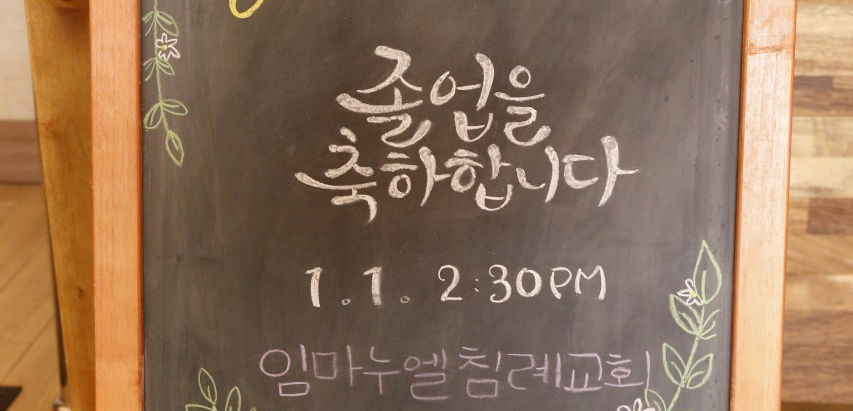 졸업을
축하합니다
1.1. 2:30PM
임마누엘침례교회